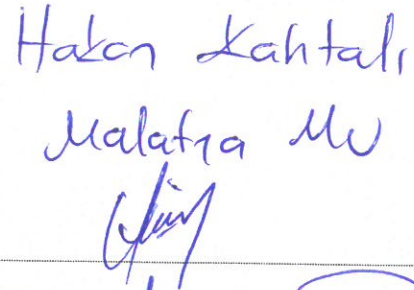 Hakan Kahtalı
Malatya MV